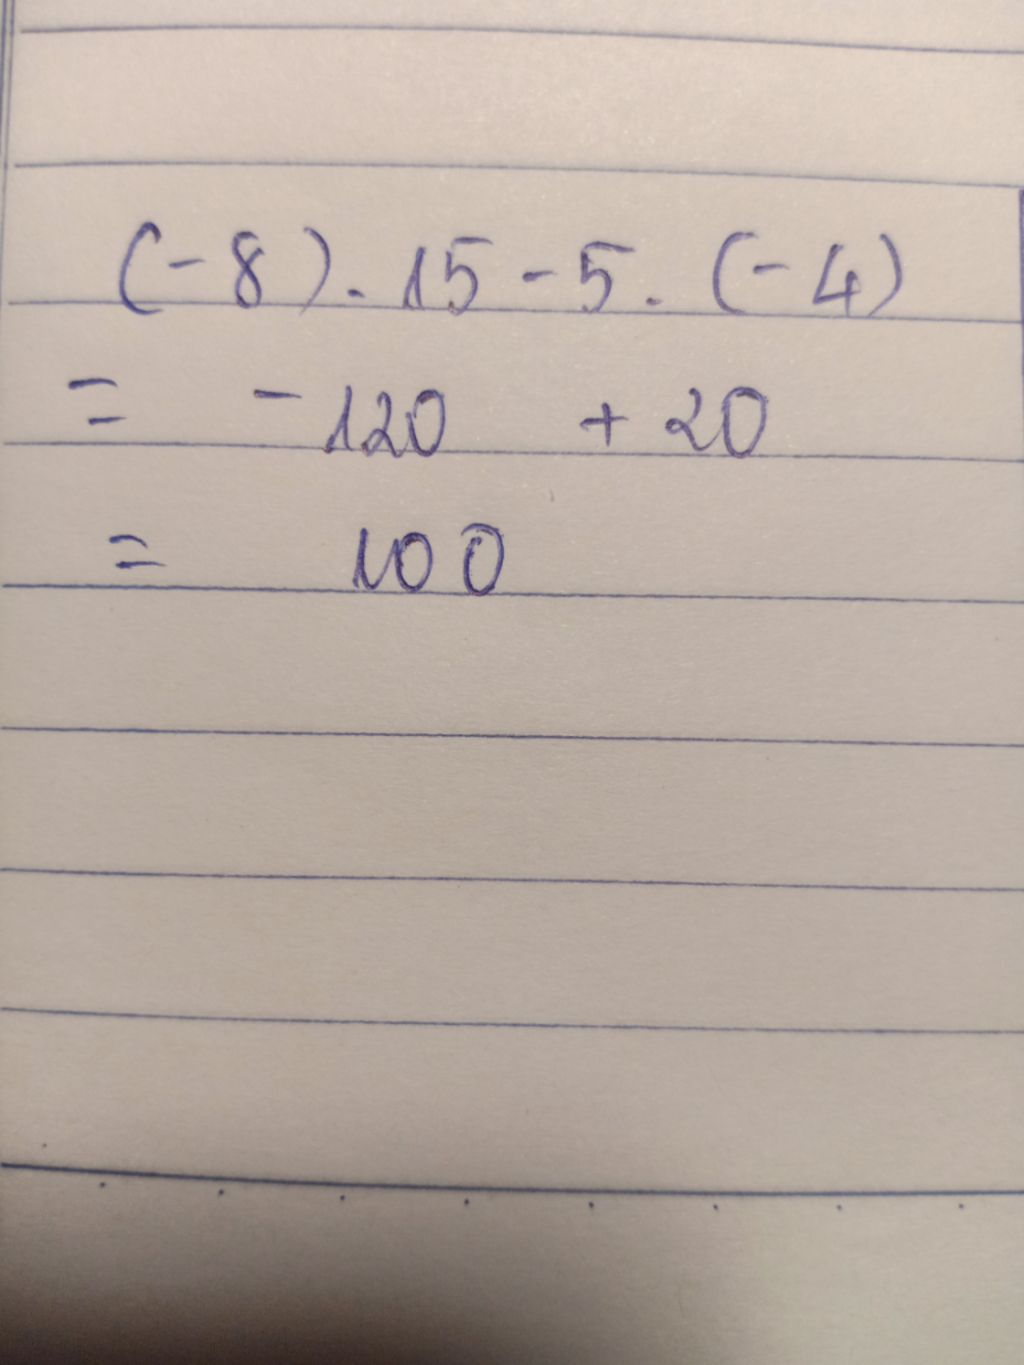 (-8) . 15 - 5 . (-4)
= -120 + 20
= 100